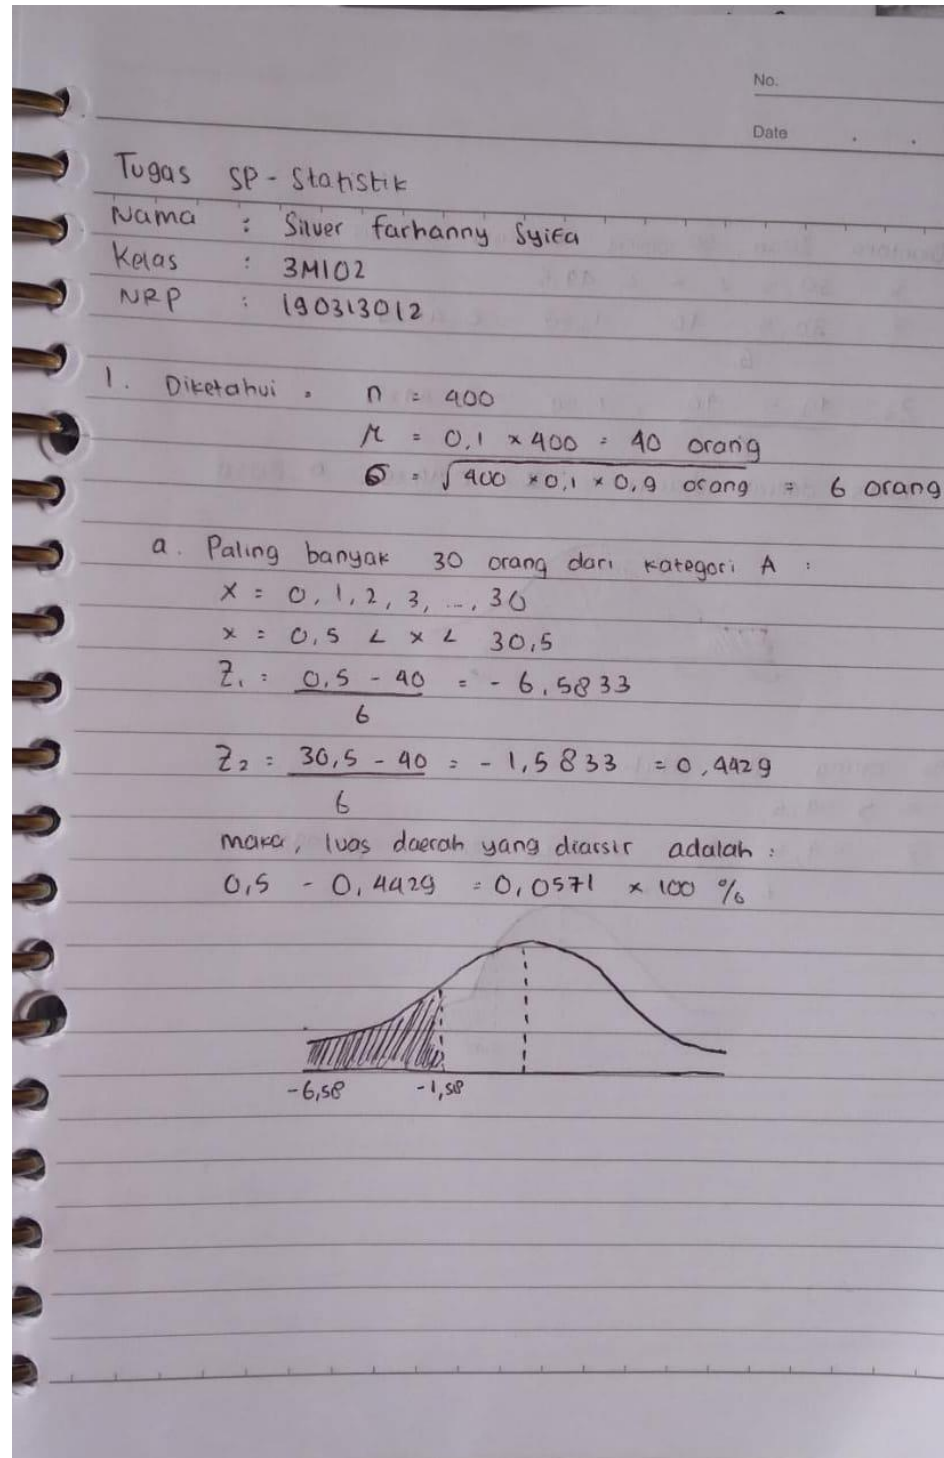 No.
Date . .
Tugas SP - Statistik
Nama : Silver Farhanny Syifa
Kelas : 3MI02
NRP : 190313012
1. Diketahui : n = 400
μ = 0,1 × 400 = 40 orang
σ = √400 × 0,1 × 0,9 orang = 6 orang
a. Paling banyak 30 orang dari kategori A :
X = 0, 1, 2, 3, ..., 30
x = 0,5 < x < 30,5
Z₁ = 0,5 - 40 = - 6,5833
6
Z₂ = 30,5 - 40 = - 1,5833 = 0,4429
6
maka, luas daerah yang diarsir adalah :
0,5 - 0,4429 = 0,0571 × 100 %
-6,58 -1,58